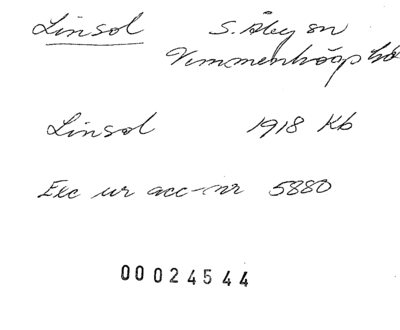 Linsol S. Åby sn
Vemmenhögs hd
Linsol 1918 Kb
Exc ur acc-nr 5880
00024544